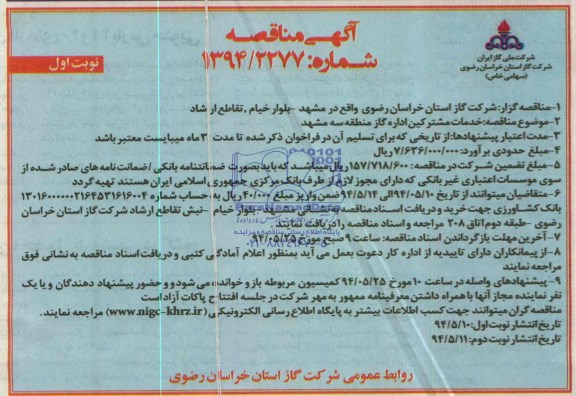 آگهی مناقصه
شماره: ۱۳۹۴/۲۲۷۷
نوبت اول
شرکت ملی گاز ایران
شرکت گاز استان خراسان رضوی
(سهامی خاص)
۱-مناقصه گزار: شرکت گاز استان خراسان رضوی واقع در مشهد -بلوار خیام -تقاطع ارشاد
۲-موضوع مناقصه: خدمات مشترکین اداره گاز منطقه سه مشهد
۳-مدت اعتبار پیشنهادها: از تاریخی که برای تسلیم آن در فراخوان ذکر شده تا مدت ۳ ماه میبایست معتبر باشد
۴-مبلغ حدودی برآورد: ۷/۶۳۶/۰۰۰/۰۰۰ ریال
۵-مبلغ تضمین شرکت در مناقصه: ۱۵۷/۷۱۸/۶۰۰ ریال میباشد که باید بصورت ضمانتنامه بانکی /ضمانت نامه های صادر شده از
سوی موسسات اعتباری غیر بانکی که دارای مجوز لازم از طرف بانک مرکزی جمهوری اسلامی ایران هستند تهیه گردد
۶-متقاضیان میتوانند از تاریخ ۹۴/۰۵/۱۰ الی ۹۴/۵/۱۴ ضمن واریز مبلغ ۴۰۰/۰۰۰ ریال به حساب شماره ۱۳۰۱۶۰۰۰۰۰۰۲۱۶۴۵۳۱۶۱۶۰۰۴
بانک کشاورزی جهت خرید و دریافت اسناد مناقصه به نشانی مشهد -بلوار خیام -نبش تقاطع ارشاد شرکت گاز استان خراسان
رضوی -طبقه دوم اتاق ۳۰۸ مراجعه و اسناد مناقصه را دریافت نمایند.
۷-آخرین مهلت بازگرداندن اسناد مناقصه: ساعت ۹ صبح مورخ ۹۴/۰۵/۲۵
۸-از پیمانکاران دارای تاییدیه از اداره کار دعوت بعمل می آید بمنظور اعلام آمادگی کتبی و دریافت اسناد مناقصه به نشانی فوق
مراجعه نمایند
۹-پیشنهادهای واصله در ساعت ۱۰ مورخ ۹۴/۰۵/۲۵ کمیسیون مربوطه باز و خوانده می شود و حضور پیشنهاد دهندگان و یا یک
نفر نماینده مجاز آنها با همراه داشتن معرفینامه ممهور به مهر شرکت در جلسه افتتاح پاکات آزاد است
مناقصه گران میتوانند جهت کسب اطلاعات بیشتر به پایگاه اطلاع رسانی الکترونیکی (www.nigc-khrz.ir) مراجعه نمایند.
تاریخ انتشار نوبت اول: ۹۴/۵/۱۰
تاریخ انتشار نوبت دوم: ۹۴/۵/۱۱
روابط عمومی شرکت گاز استان خراسان رضوی